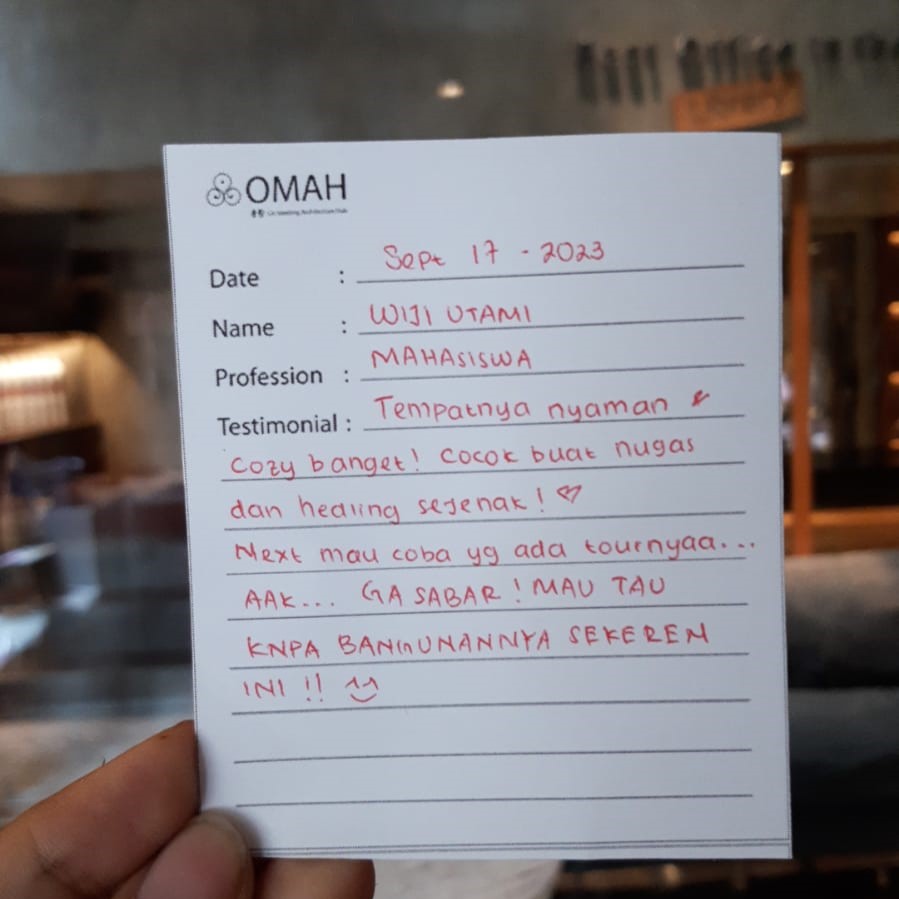 OMAH
Date : Sept 17 - 2023
Name : WIJI UTAMI
Profession : MAHASISWA
Testimonial : Tempatnya nyaman &
cozy banget! Cocok buat nugas
dan healing sejenak! ♡
Next mau coba yg ada tournyaa...
AAK... GA SABAR! MAU TAU
KNPA BANGUNANNYA SEKEREN
INI !! ^_^